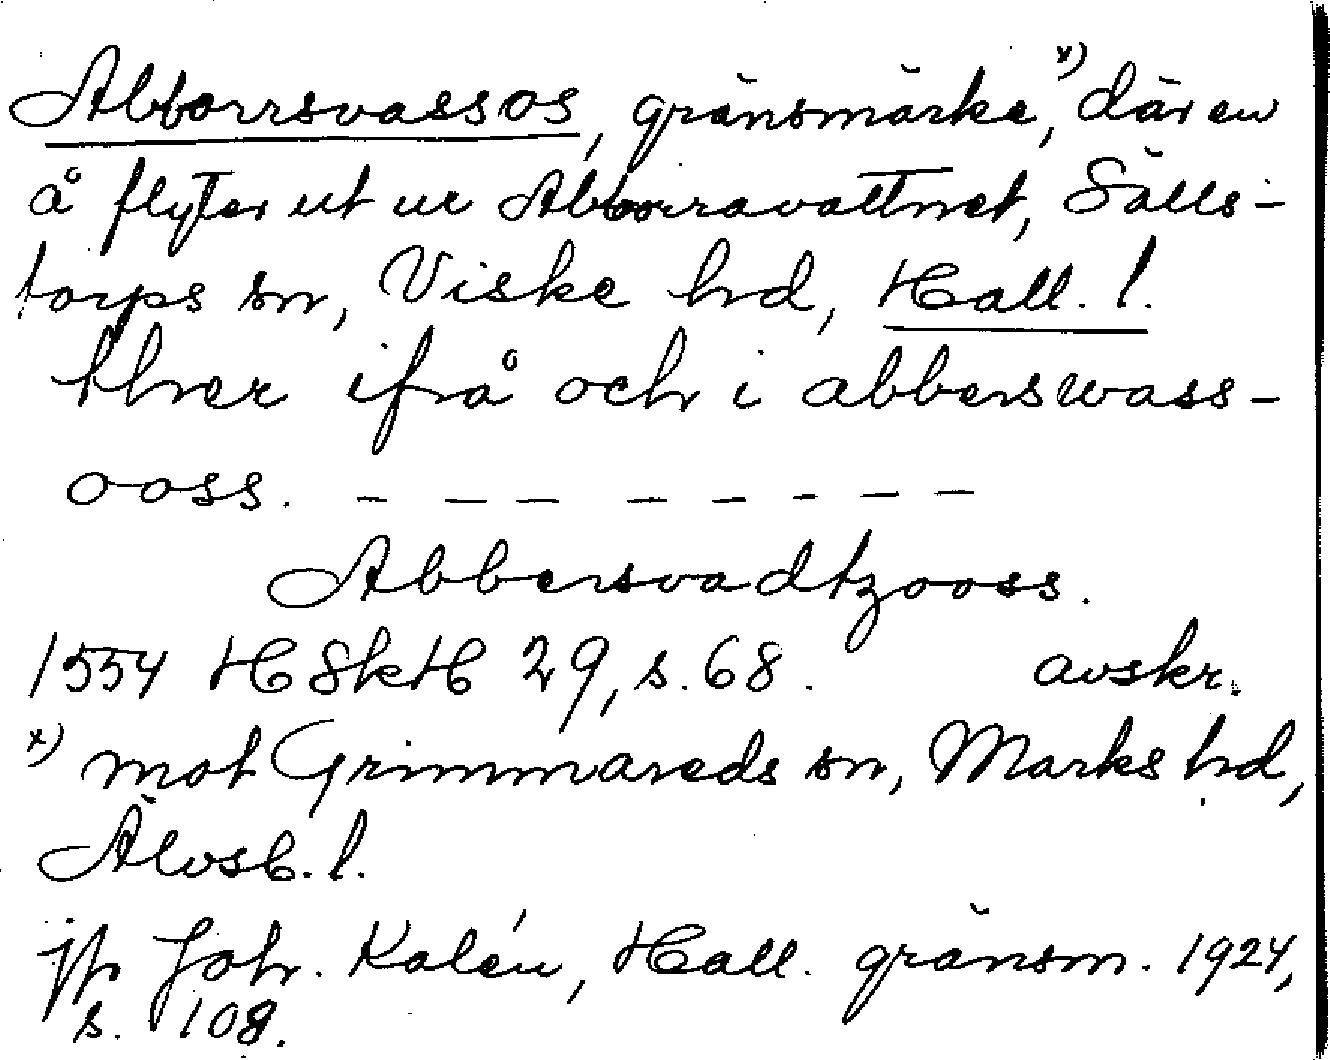 Abborrsvassos, gränsmärke,x) där en
å flyter ut ur Abborravattnet, Sälls-
torps sn, Viske hd, Hall. l.
thner ifrå och i abberswass-
ooss. - - - - - - - -
Abbersvadtzooss.
1554 HSkH 29, s. 68. avskr.
x) mot Grimmareds sn, Marks hd,
Älvsb. l.
jfr Joh. Kalén, Hall. gränsm. 1924,
s. 108.